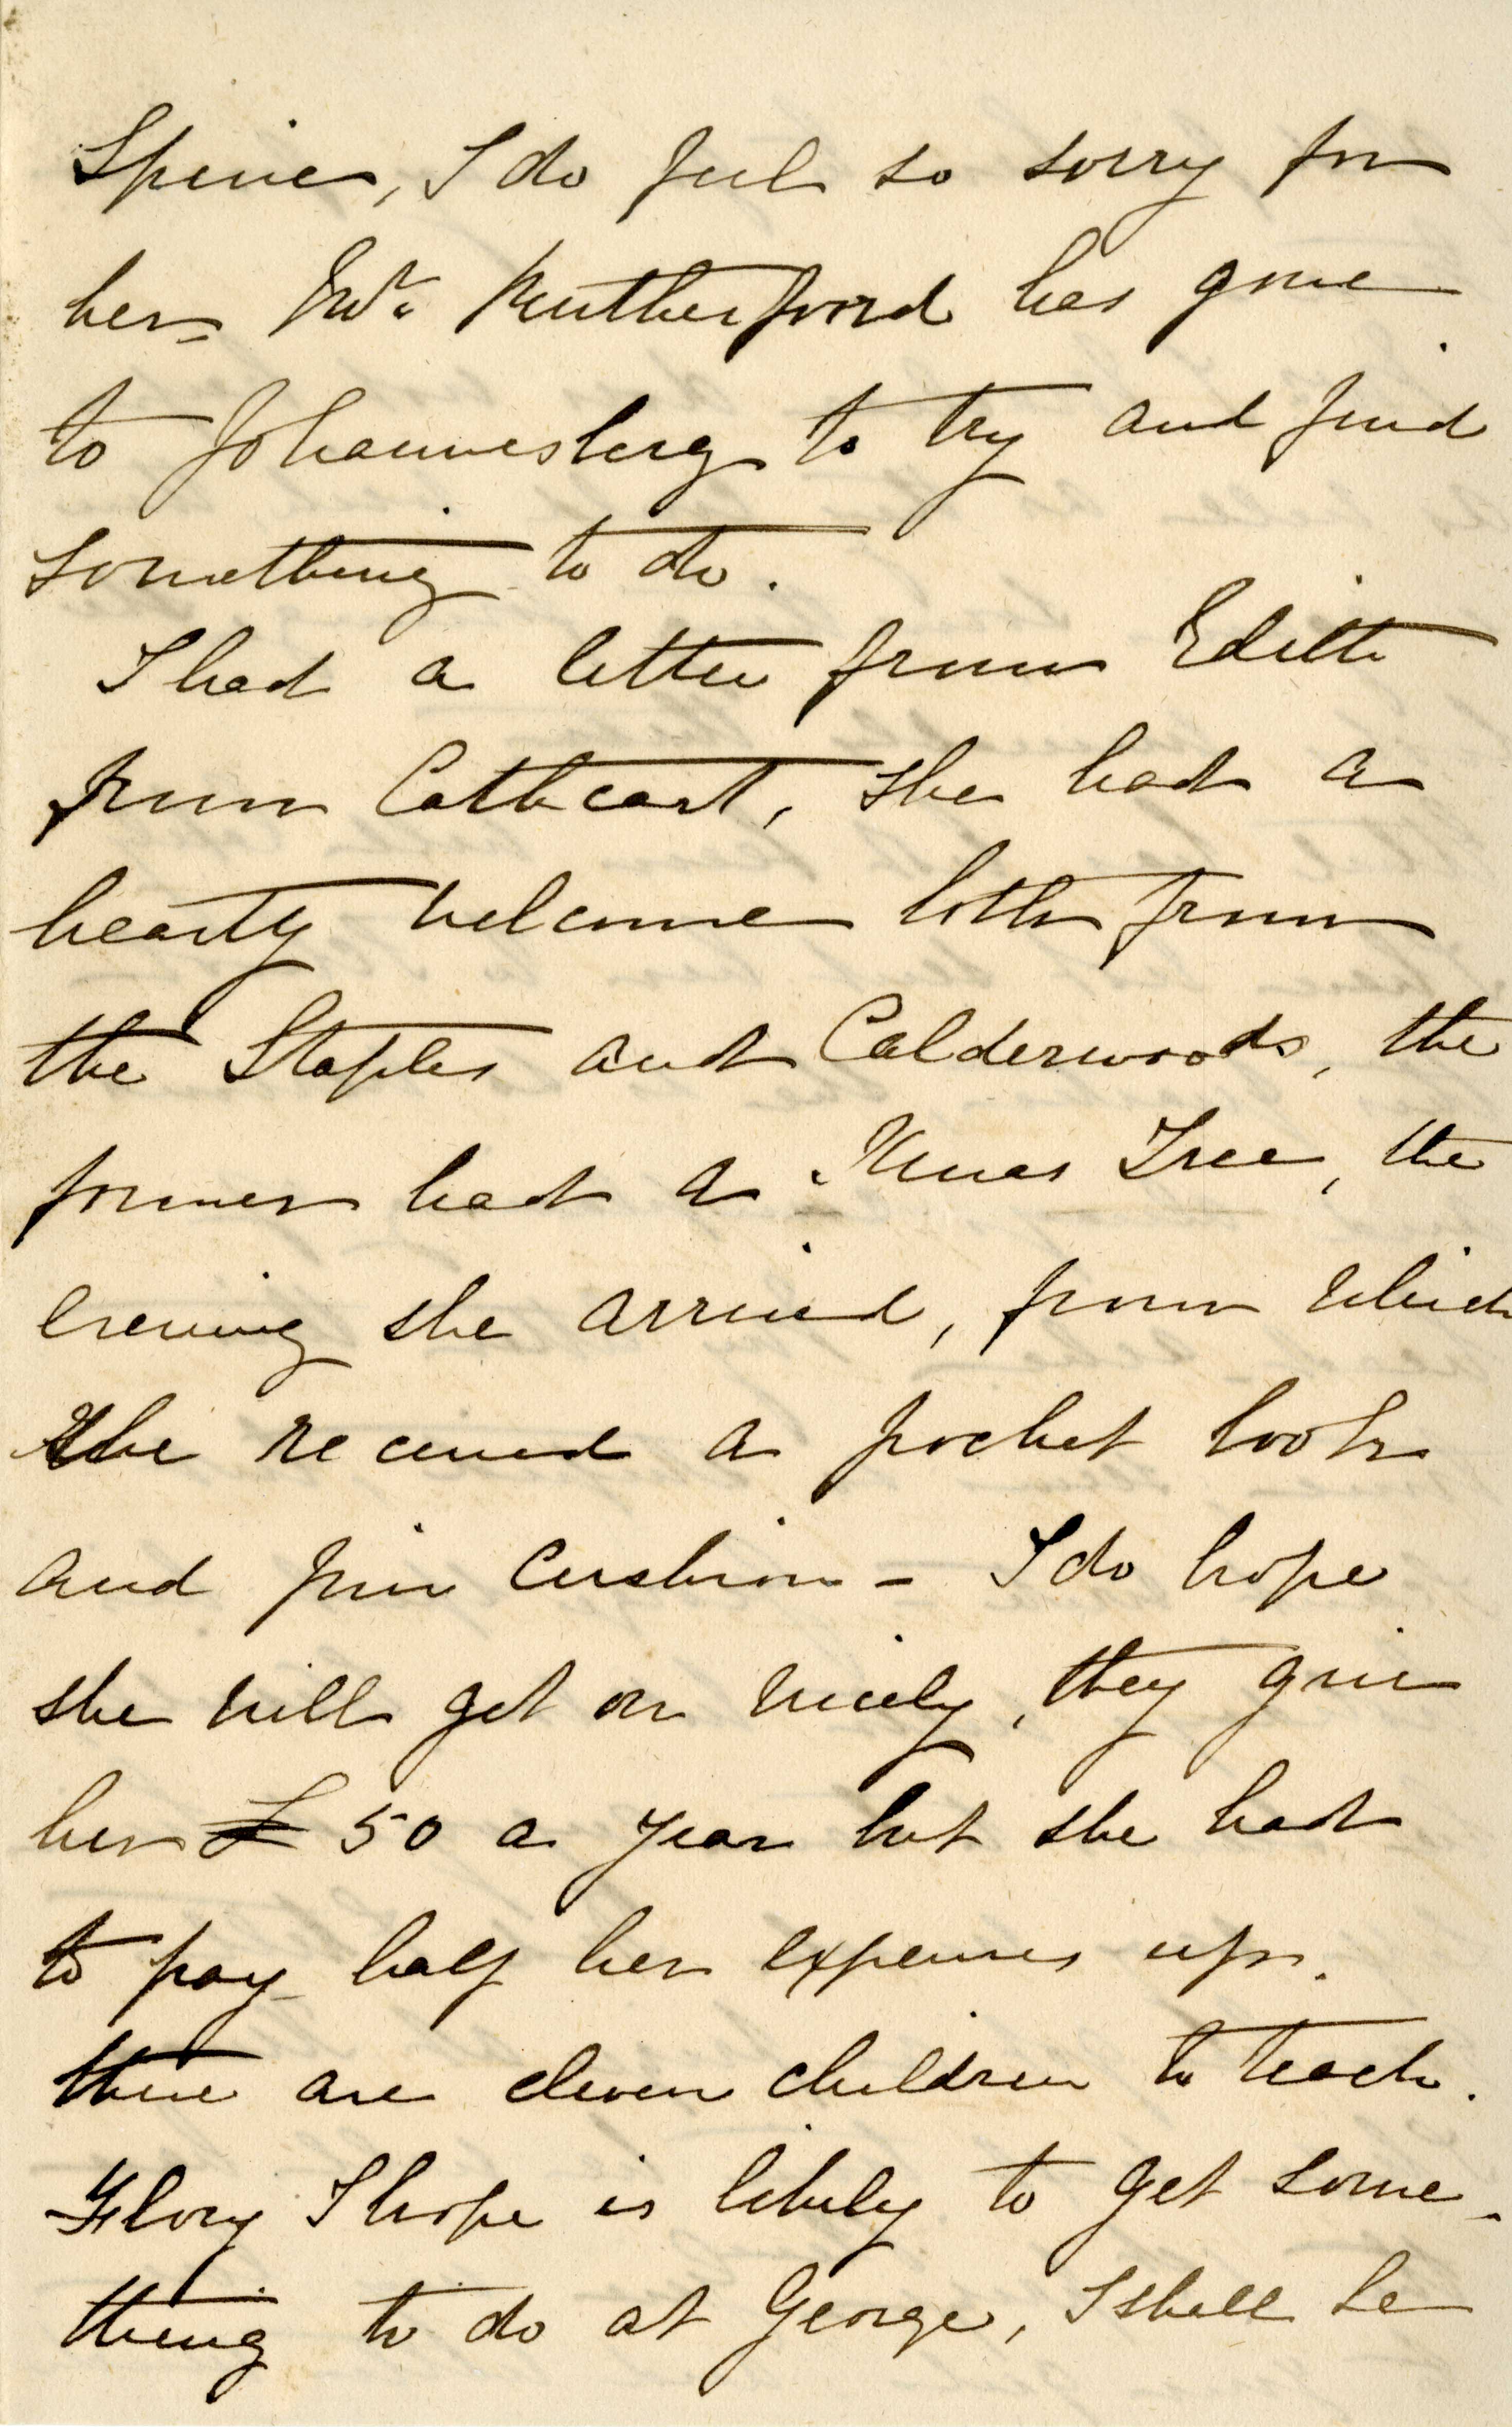 Spine, I do feel so sorry for
her = Mr. Rutherfoord has gone
to Johannesberg to try and find
something to do.
I had a letter from Edith
from Cathcart, she had a
hearty welcome both from
the Staples and Calderwoods, the
former had a Xmas Tree, the
evening she arrived, from which
she received a pocket book
and pin cushion - I do hope
she will get on nicely, they give
her £50 a year but she had
to pay half her expenses up.
there are eleven children to teach.
Flory I hope is likely to get some-
thing to do at George, I shall be